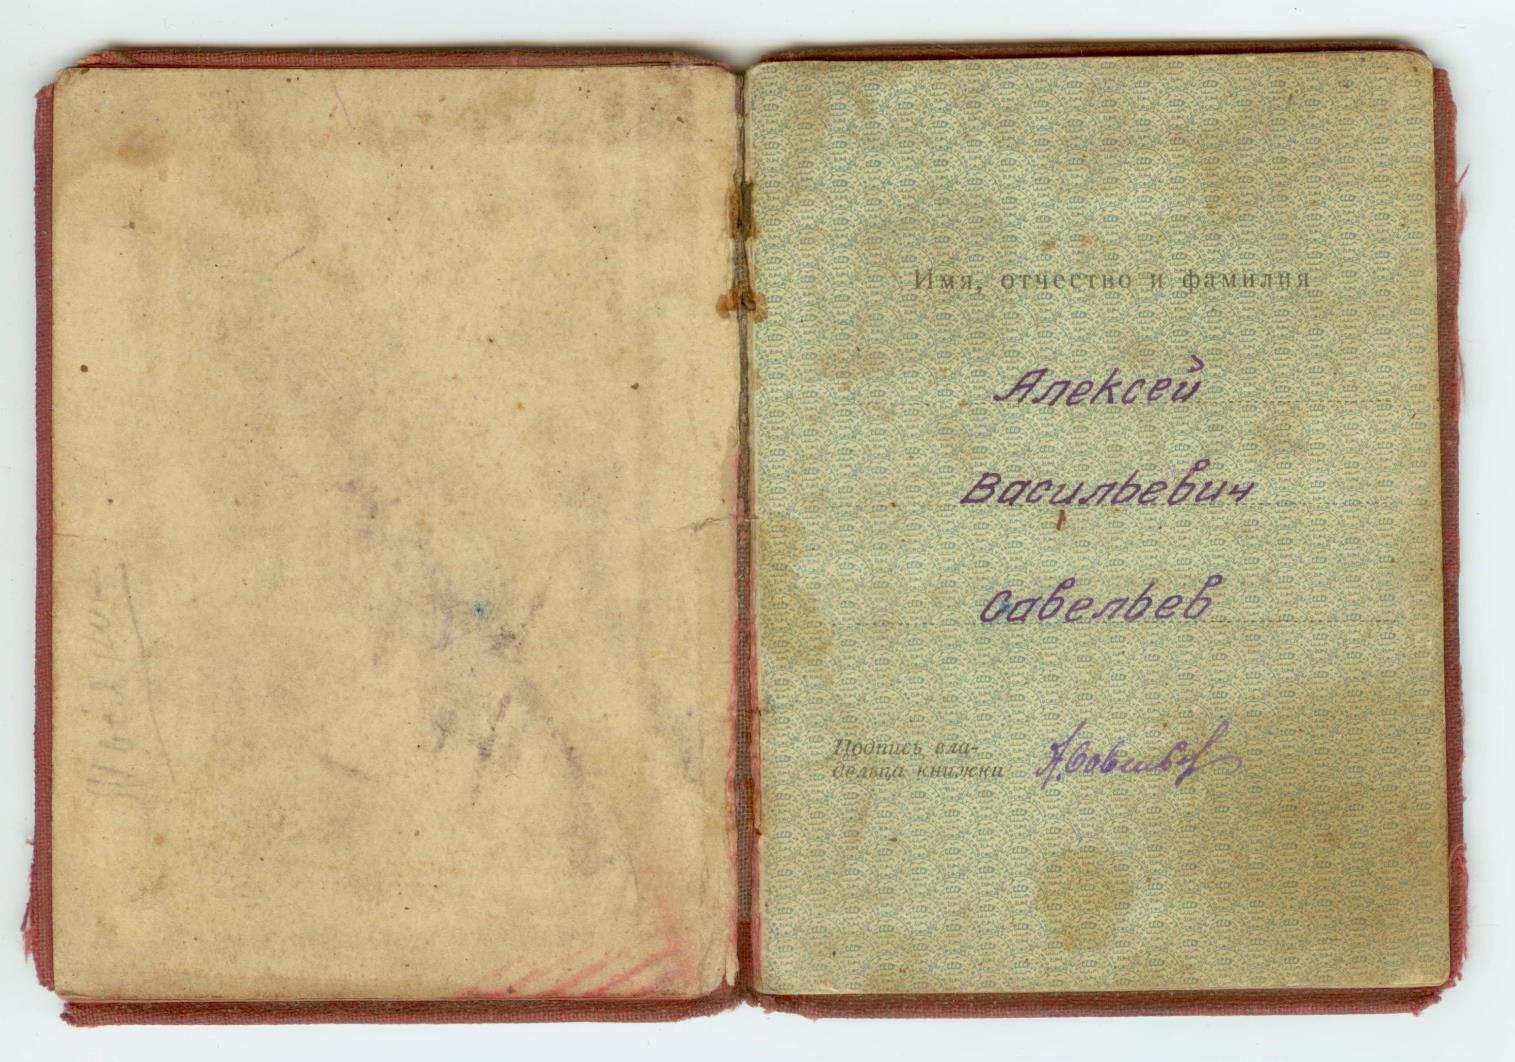 Имя, отчество и фамилия
Алексей
Васильевич
Савельев
Подпись вла-
дельца книжки
А. Савельев